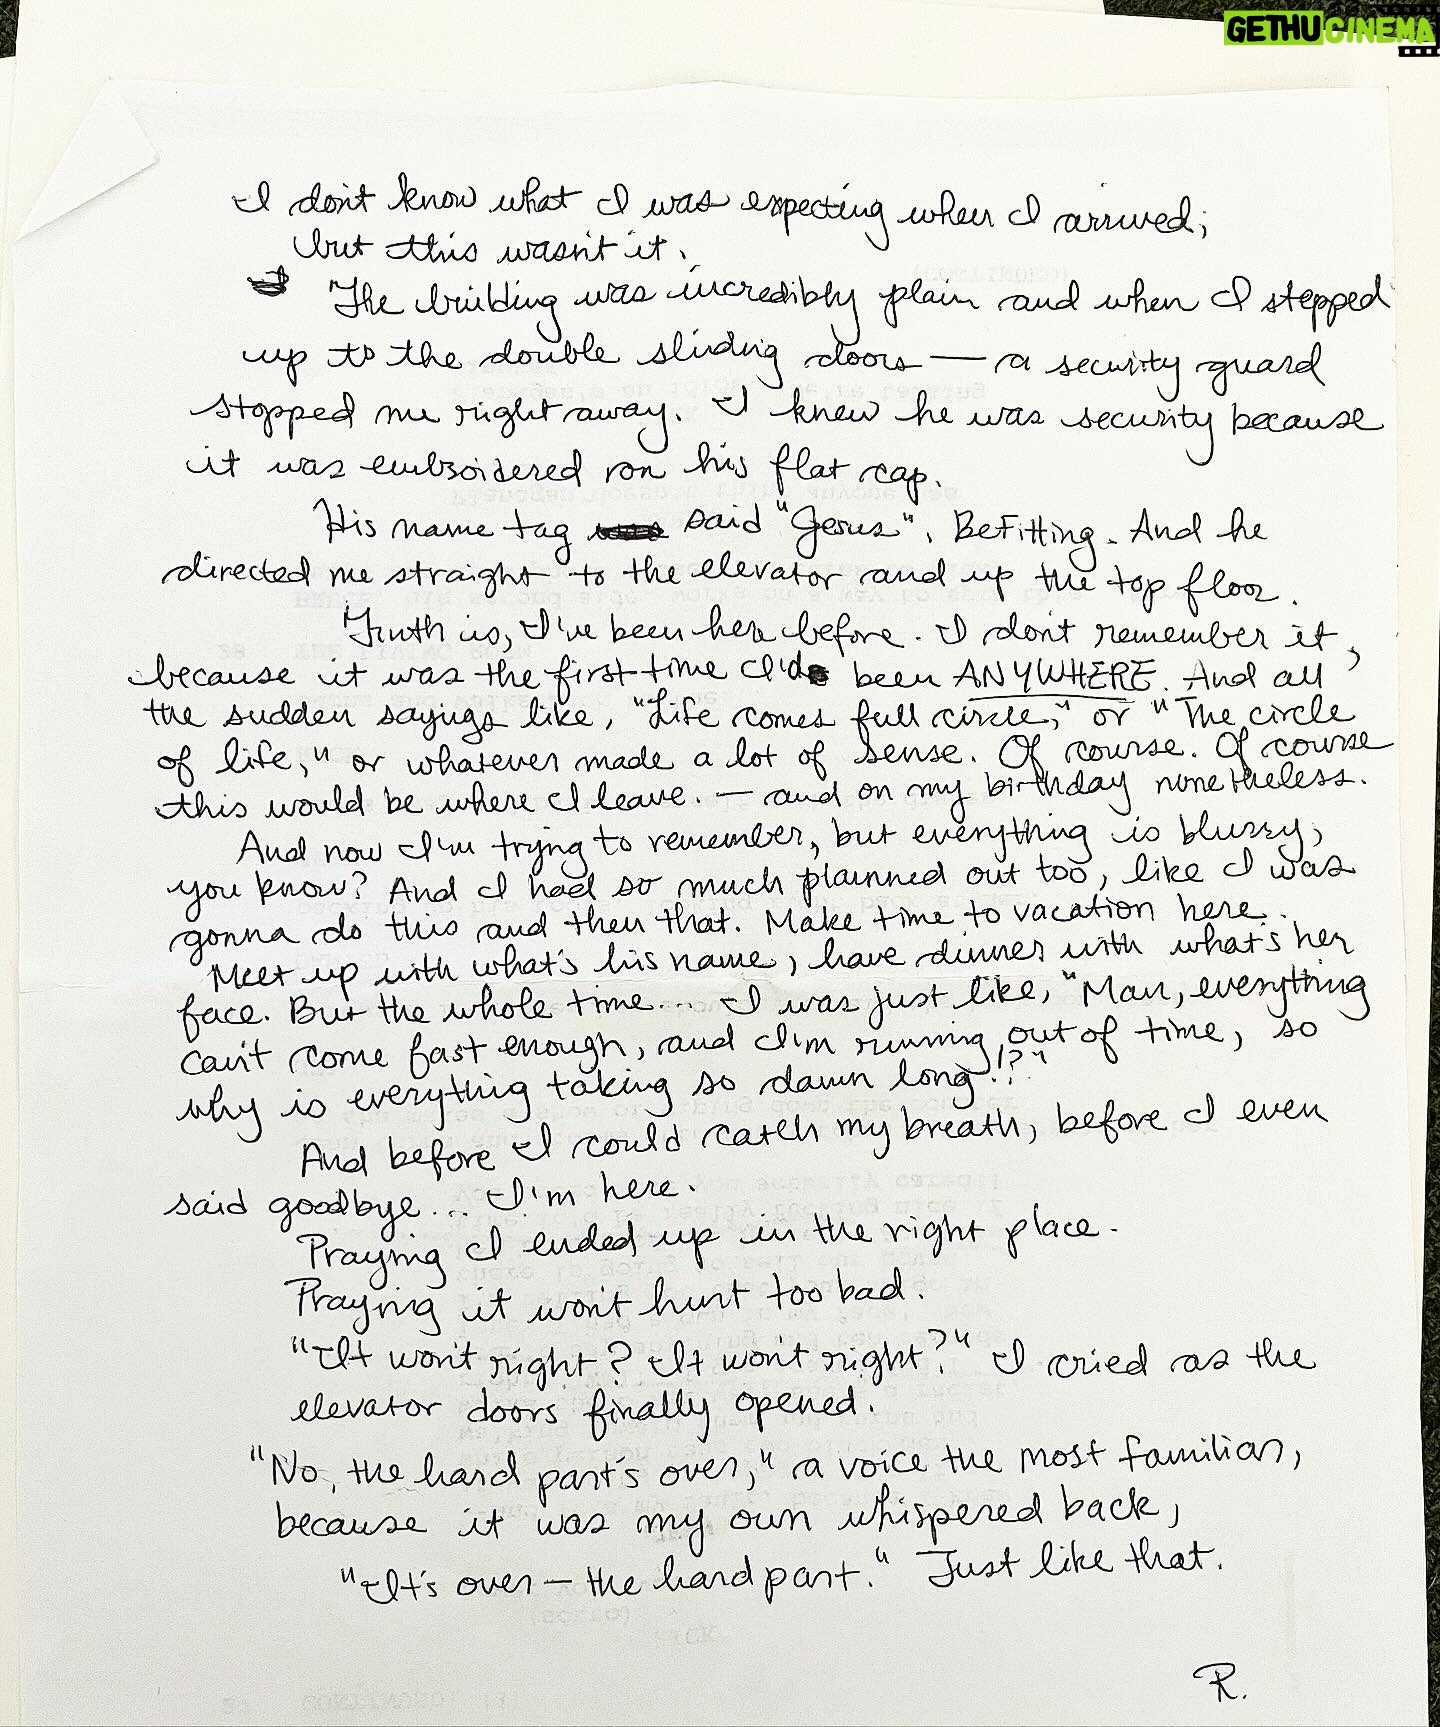 GETHUCINEMA
I don't know what I was expecting when I arrived;
but this wasn't it.
The building was incredibly plain and when I stepped
up to the double sliding doors — a security guard
stopped me right away. I knew he was security because
it was embroidered on his flat cap.
His name tag said "Jesus". Befitting. And he
directed me straight to the elevator and up the top floor.
Truth is, I've been here before. I don't remember it,
because it was the first time I'd been ANYWHERE. And all
the sudden sayings like, "Life comes full circle," or "The circle
of life," or whatever made a lot of sense. Of course. Of course
this would be where I leave. — and on my birthday nonetheless.
And now I'm trying to remember, but everything is blurry,
you know? And I had so much planned out too, like I was
gonna do this and then that. Make time to vacation here.
Meet up with what's his name, have dinner with what's her
face. But the whole time... I was just like, "Man, everything
can't come fast enough, and I'm running out of time, so
why is everything taking so damn long!?"
And before I could catch my breath, before I even
said goodbye... I'm here.
Praying I ended up in the right place.
Praying it won't hurt too bad.
"It won't right? It won't right?" I cried as the
elevator doors finally opened.
"No, the hard part's over," a voice the most familiar,
because it was my own whispered back,
"It's over — the hard part." Just like that.
R.